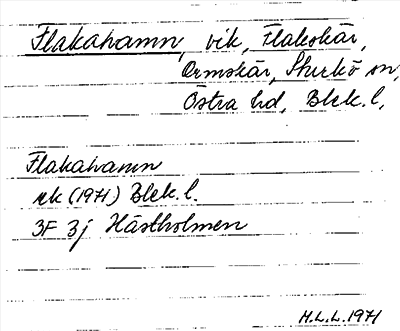 Flakahamn, vik, Flakskär,
Ormskär, Sturkö sn,
Östra hd, Blek. l,
Flakahamn
ek (1971) Blek. l.
3F 3j Hästholmen
M.L.L. 1971